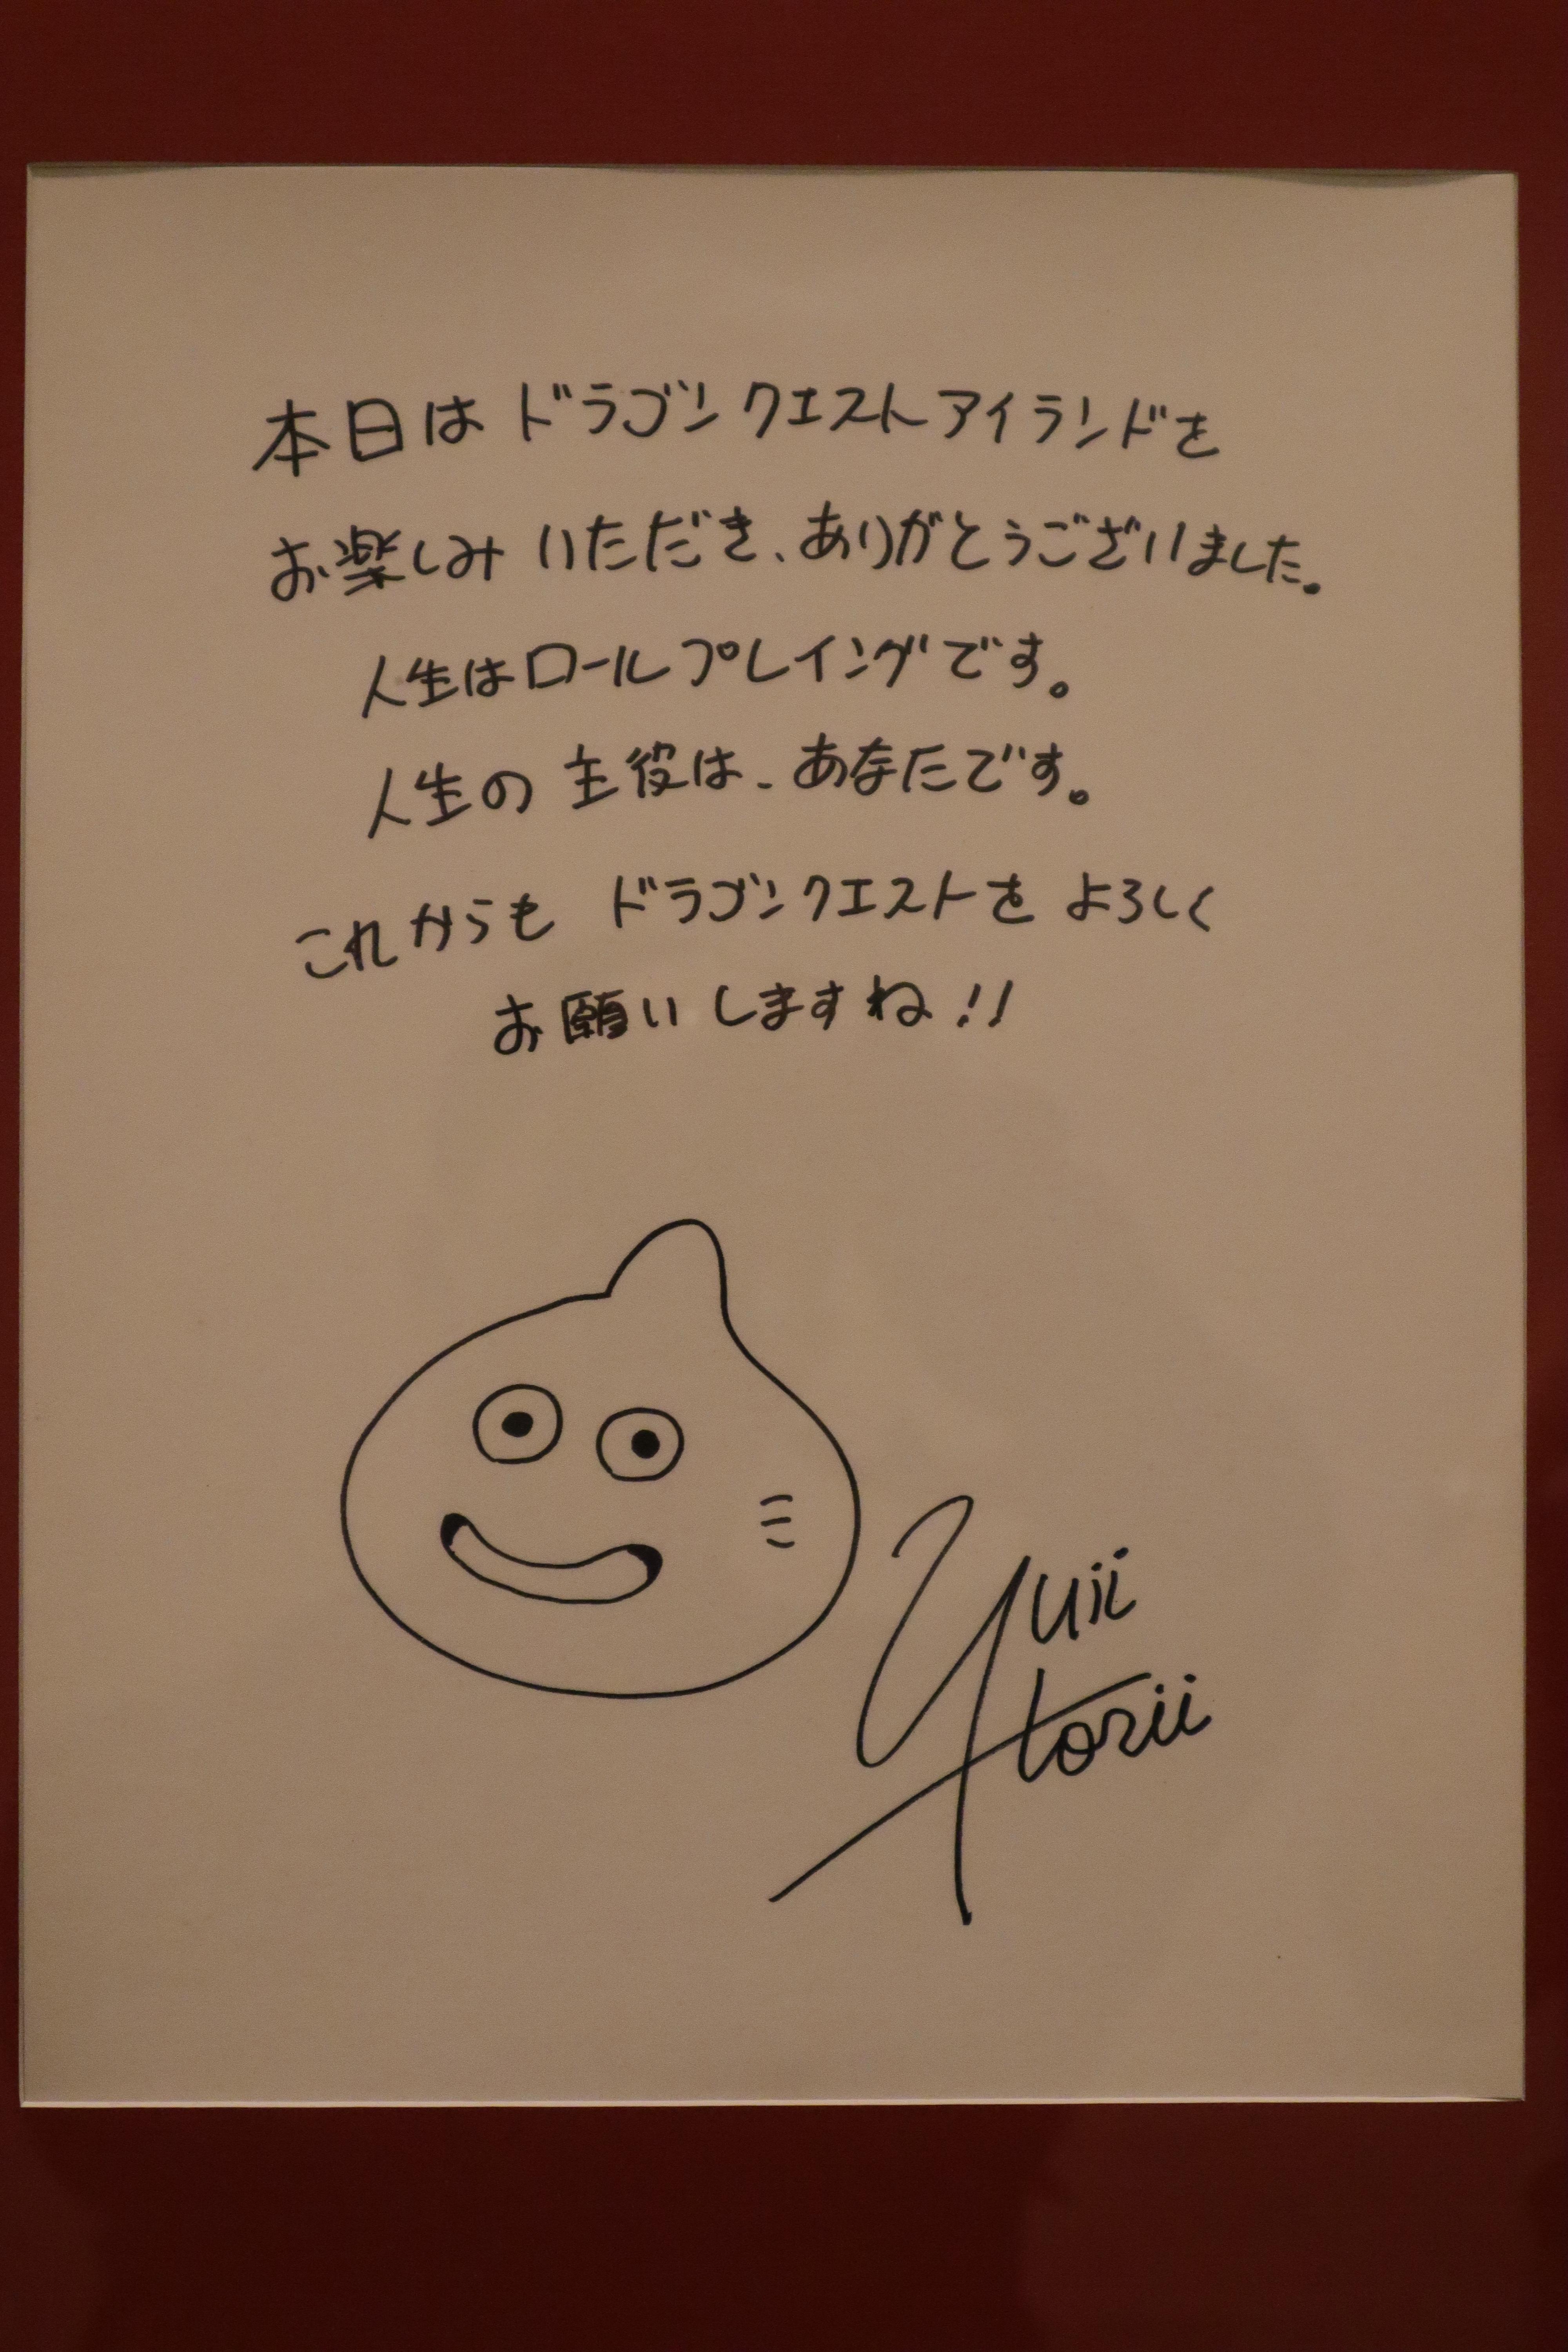 本日はドラゴンクエストアイランドを
お楽しみいただき、ありがとうございました。
人生はロールプレイングです。
人生の主役は、あなたです。
これからもドラゴンクエストをよろしく
お願いしますね!!
Yuii
Horii